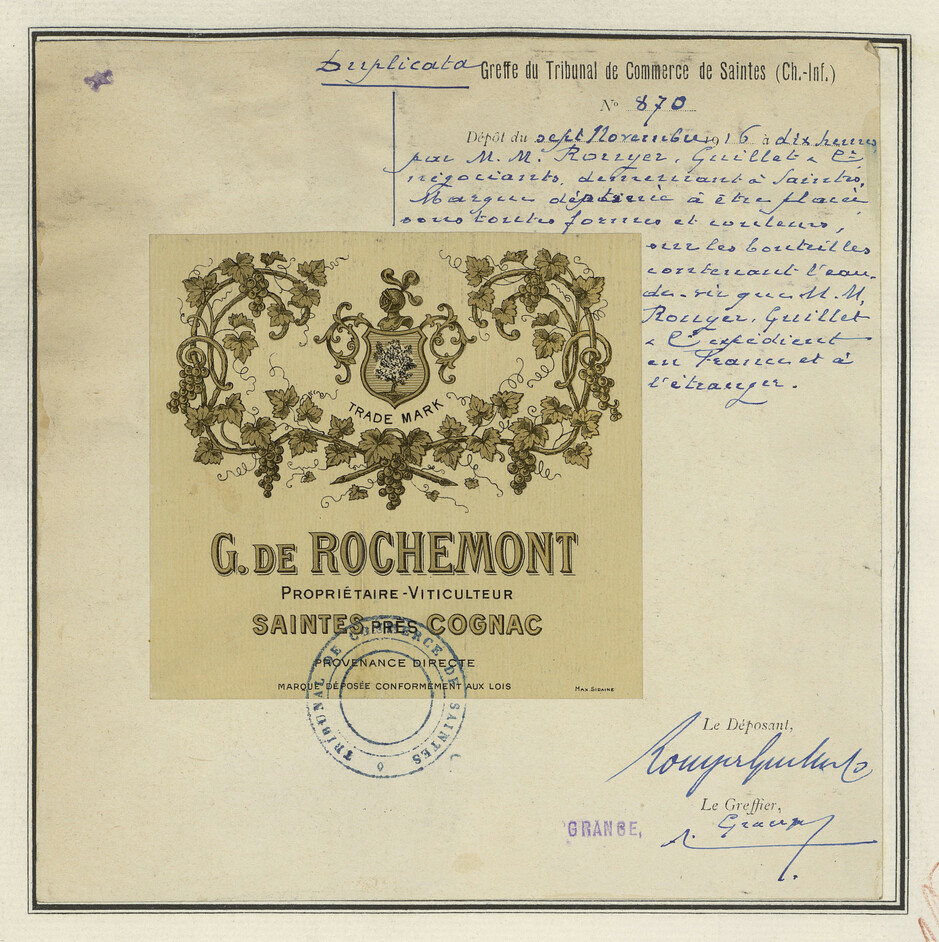 Duplicata Greffe du Tribunal de Commerce de Saintes (Ch.-Inf.)
N° 870
Dépôt du sept Novembre 1916 à dix heures
par M.M. Rouyer, Guillet & Cie
négociants, demeurant à Saintes,
Marque destinée à être placée
sous toutes formes et couleurs,
sur les bouteilles
contenant l'eau-
de-vie que M.M.
Rouyer, Guillet
& Cie expédient
en France et à
l'étranger.
TRADE MARK
G. DE ROCHEMONT
PROPRIÉTAIRE-VITICULTEUR
SAINTES PRÈS COGNAC
PROVENANCE DIRECTE
MARQUE DÉPOSÉE CONFORMÉMENT AUX LOIS
MAX SIDAINE
TRIBUNAL DE COMMERCE DE SAINTES
Le Déposant,
Rouyer Guillet & Co
Le Greffier,
GRANGE,
Grange